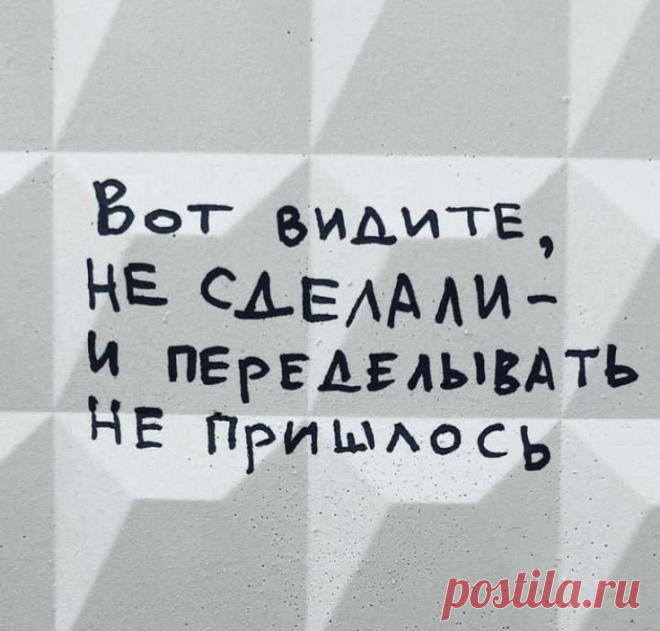 Вот видите,
не сделали –
и переделывать
не пришлось
postila.ru